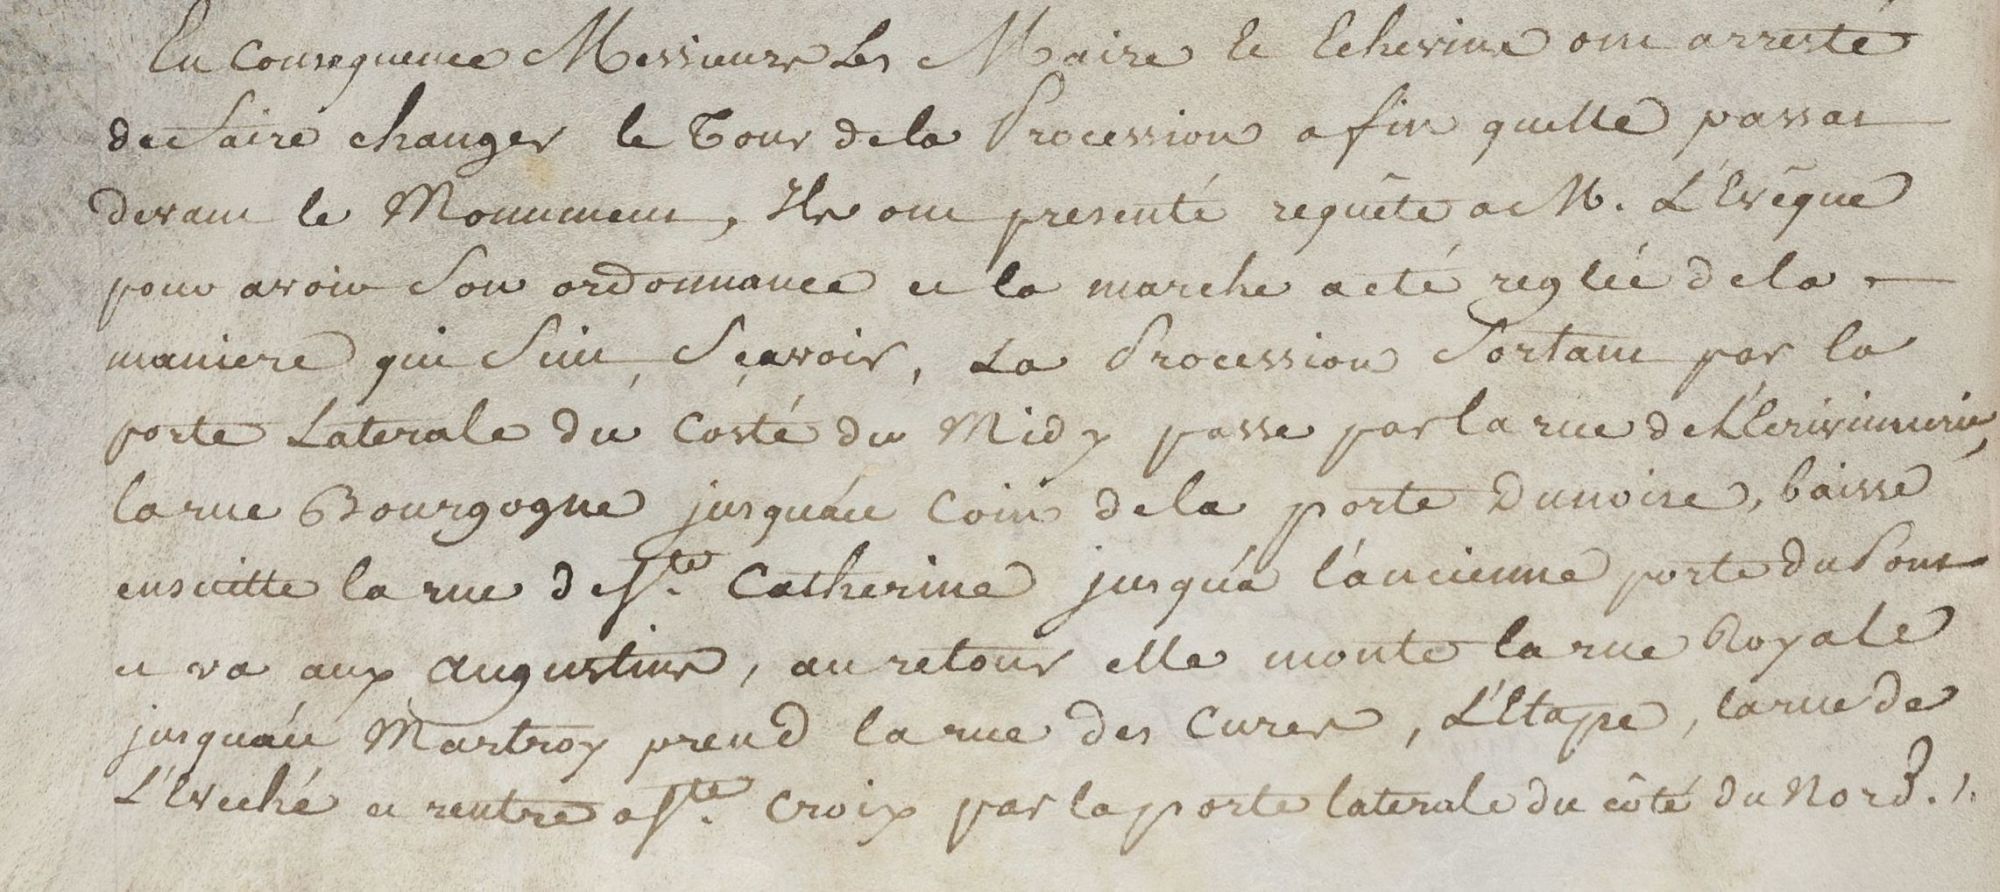 En Consequence Messieurs Les Maire et Echevins ont arresté
de faire changer le Tour de la Procession afin quelle passat
devant le Monument, Ils ont presenté requête a M. L'Evêque
pour avoir Son ordonnance et la marche a eté reglée de la
maniere qui Suit, Sçavoir, La Procession Sortant par la
porte Laterale du Costé du Midy passe par la rue de L'Ecrivinnerie,
la rue Bourgogne jusqu'au Coin de la porte Dunoise, baisse
ensuitte la rue de Ste. Catherine jusqu'a l'ancienne porte du Pont
et va aux Augustins, au retour elle monte la rue Royale
jusqu'au Martroy prend la rue des Cures, L'Etape, la rue de
L'Eveché et rentre a Ste. Croix par la porte laterale du côté du Nord.